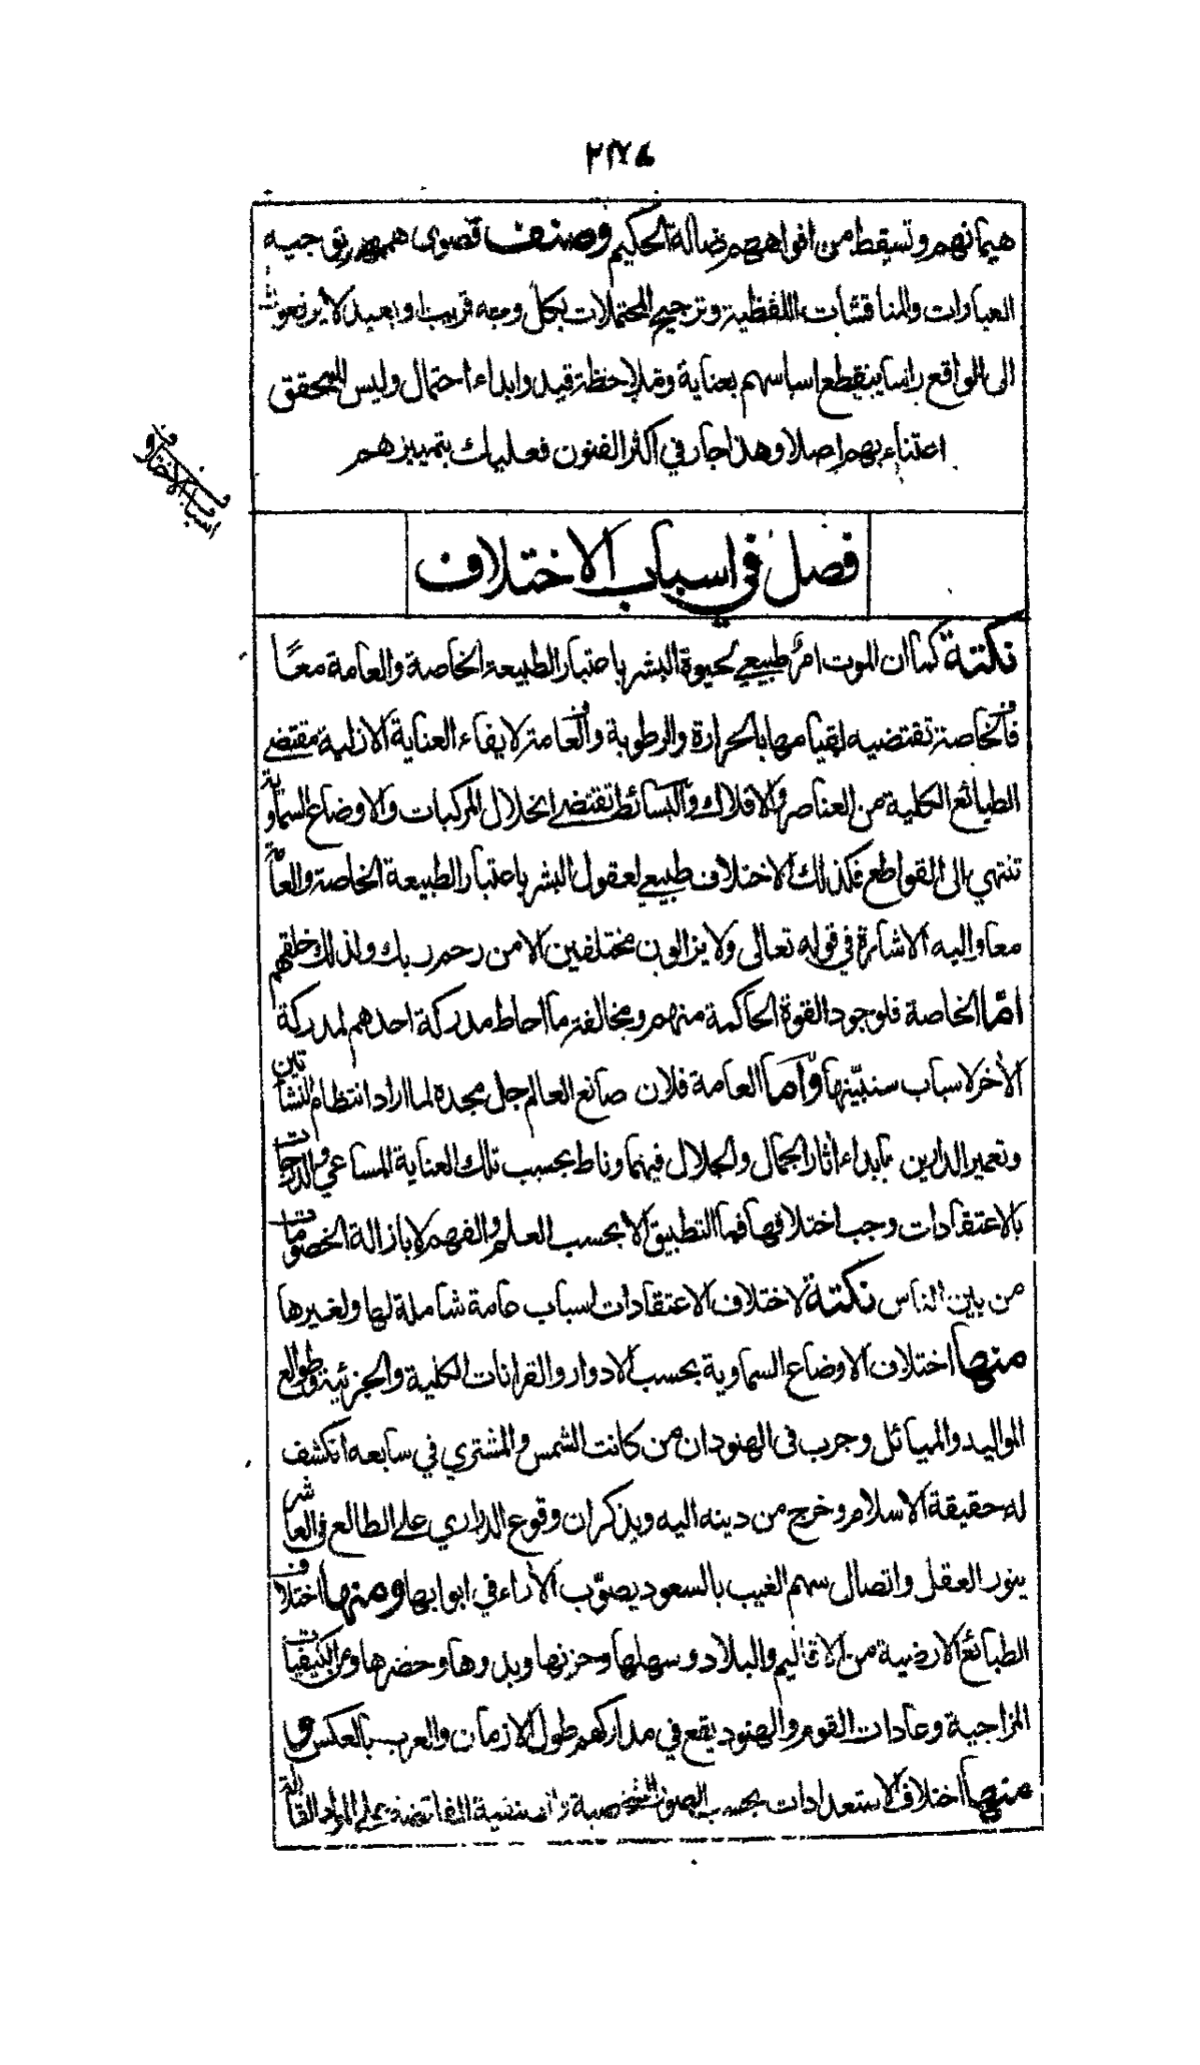 هيمانهم وتسقط من افواههم ضالة الحكيم وصنف قصوى هممهم جيه
العبارات والمناقشات اللفظية وترجيح المحتملات بكل وجه قريب او بعيد لا يرفعون
الى الواقع راسا ينقطع اساسهم بعناية وملاحظة قيد وابداء احتمال وليس للمحقق
اعتناء بهم اصلا وهذا جار في اكثر الفنون فعليك بتمييزهم
اسباب الاختلاف
فصل في اسباب الاختلاف
نكتة كما ان الموت امر طبيعي لحيوة البشر باعتبار الطبيعة الخاصة والعامة معًا
فالخاصة تقتضيه لقيامها بالحرارة والرطوبة والعامة لايفاء العناية الازلية مقتضى
الطبائع الكلية من العناصر والافلاك والبسائط تقتضي انحلال المركبات والاوضاع السماوية
تنتهي الى القواطع فكذلك الاختلاف طبيعي لعقول البشر باعتبار الطبيعة الخاصة والعامة
معا واليه الاشارة في قوله تعالى ولا يزالون مختلفين الا من رحم ربك ولذلك خلقهم
امّا الخاصة فلوجود القوة الحاكمة منهم ومخالفة ما احاط مدركة احدهم لمدركة
الأخر لاسباب سنبيّنها وأما العامة فلان صانع العالم جل مجده لما اراد انتظام النشاتين
وتعمير الدارين بابداء اثار الجمال والجلال فيهما وناط بحسب تلك العناية المساعي والدرجات
بالاعتقادات وجب اختلافها فما التطبيق الا بحسب العلم والفهم لا بازالة الخصومات
من بين الناس نكتة لاختلاف الاعتقادات اسباب عامة شاملة لها ولغيرها
منها اختلاف الاوضاع السماوية بحسب الادوار والقرانات الكلية والجزئية وطوالع
المواليد والمسائل وجرب فى الهنود ان من كانت الشمس والمشتري في سابعه انكشف
له حقيقة الاسلام وخرج من دينه اليه ويذكر ان وقوع الدراري على الطالع والعاشر
ينور العقل واتصال سهم الغيب بالسعود يصوّب الأراء في ابوابها ومنها اختلاف
الطبائع الارضية من الاقاليم والبلاد وسهلها وحزنها وبدوها وحضرها ومن الكيفيات
المزاجية وعادات القوم والهنود يقع في مداركهم طول الازمان والعرب بالعكس و
منها اختلاف الاستعدادات بحسب الصور الشخصية والصنفية الفائضة على المواد القابلة